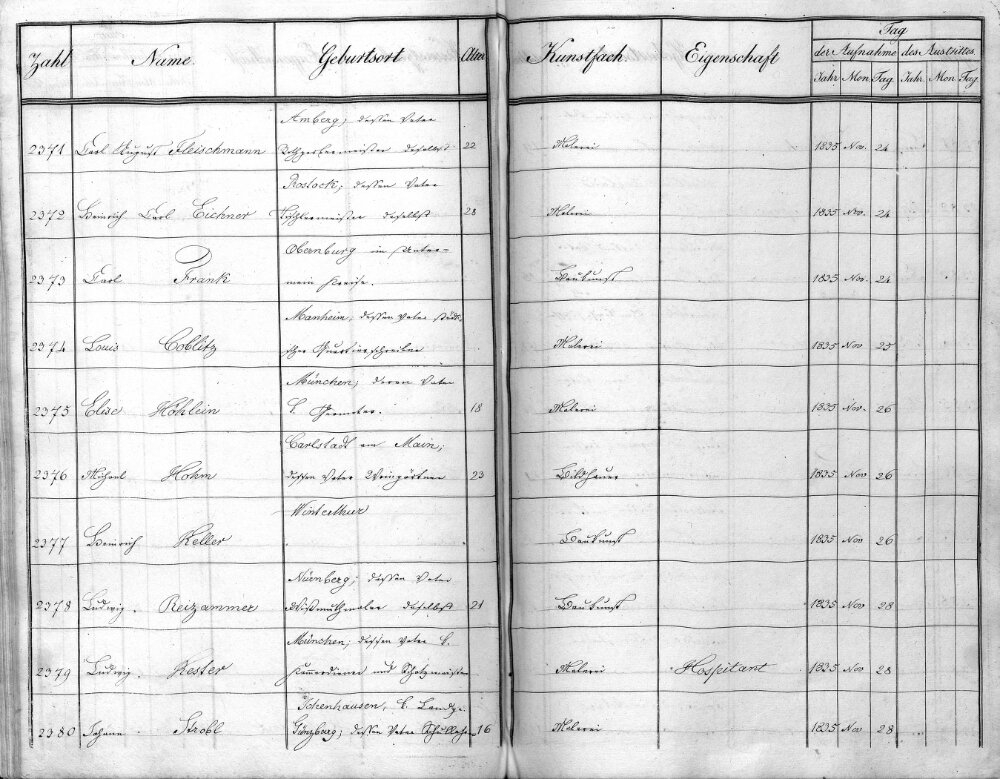 Zahl Name. Geburtsort Alter Kunstfach. Eigenschaft Tag
der Aufnahme des Austrittes.
Jahr Mon Tag Jahr Mon Tag
Amberg; dessen Vater
2371 Carl August Fleischmann daselbst 22 Malerei 1835 Nov. 24
Rostock; dessen Vater
2372 Heinrich Carl Eichner Tischlermeister daselbst 28 Malerei 1835 Nov. 24
Obernburg im Unter-
2373 Carl Frank main Kreise. Baukunst 1835 Nov 24
Manheim; dessen Vater städt-
2374 Louis Coblitz ischer Malerei 1835 Nov 25
München; deren Vater
2375 Elise Höhlein k. Geometer. 18 Malerei 1835 Nov. 26
Carlstadt am Main;
2376 Michael Hohm dessen Vater Weingärtner 23 Bildhauer 1835 Nov 26
Winterthur
2377 Heinrich Keller Baukunst 1835 Nov 26
Nürnberg; dessen Vater
2378 Ludwig Reizammer daselbst 21 Baukunst 1835 Nov 28
München; dessen Vater k.
2379 Ludwig Kester und Malerei Hospitant 1835 Nov 28
Ichenhausen, k. Landg.
2380 Johann Strobl Günzburg; dessen Vater Schullehrer 16 Malerei 1835 Nov 28